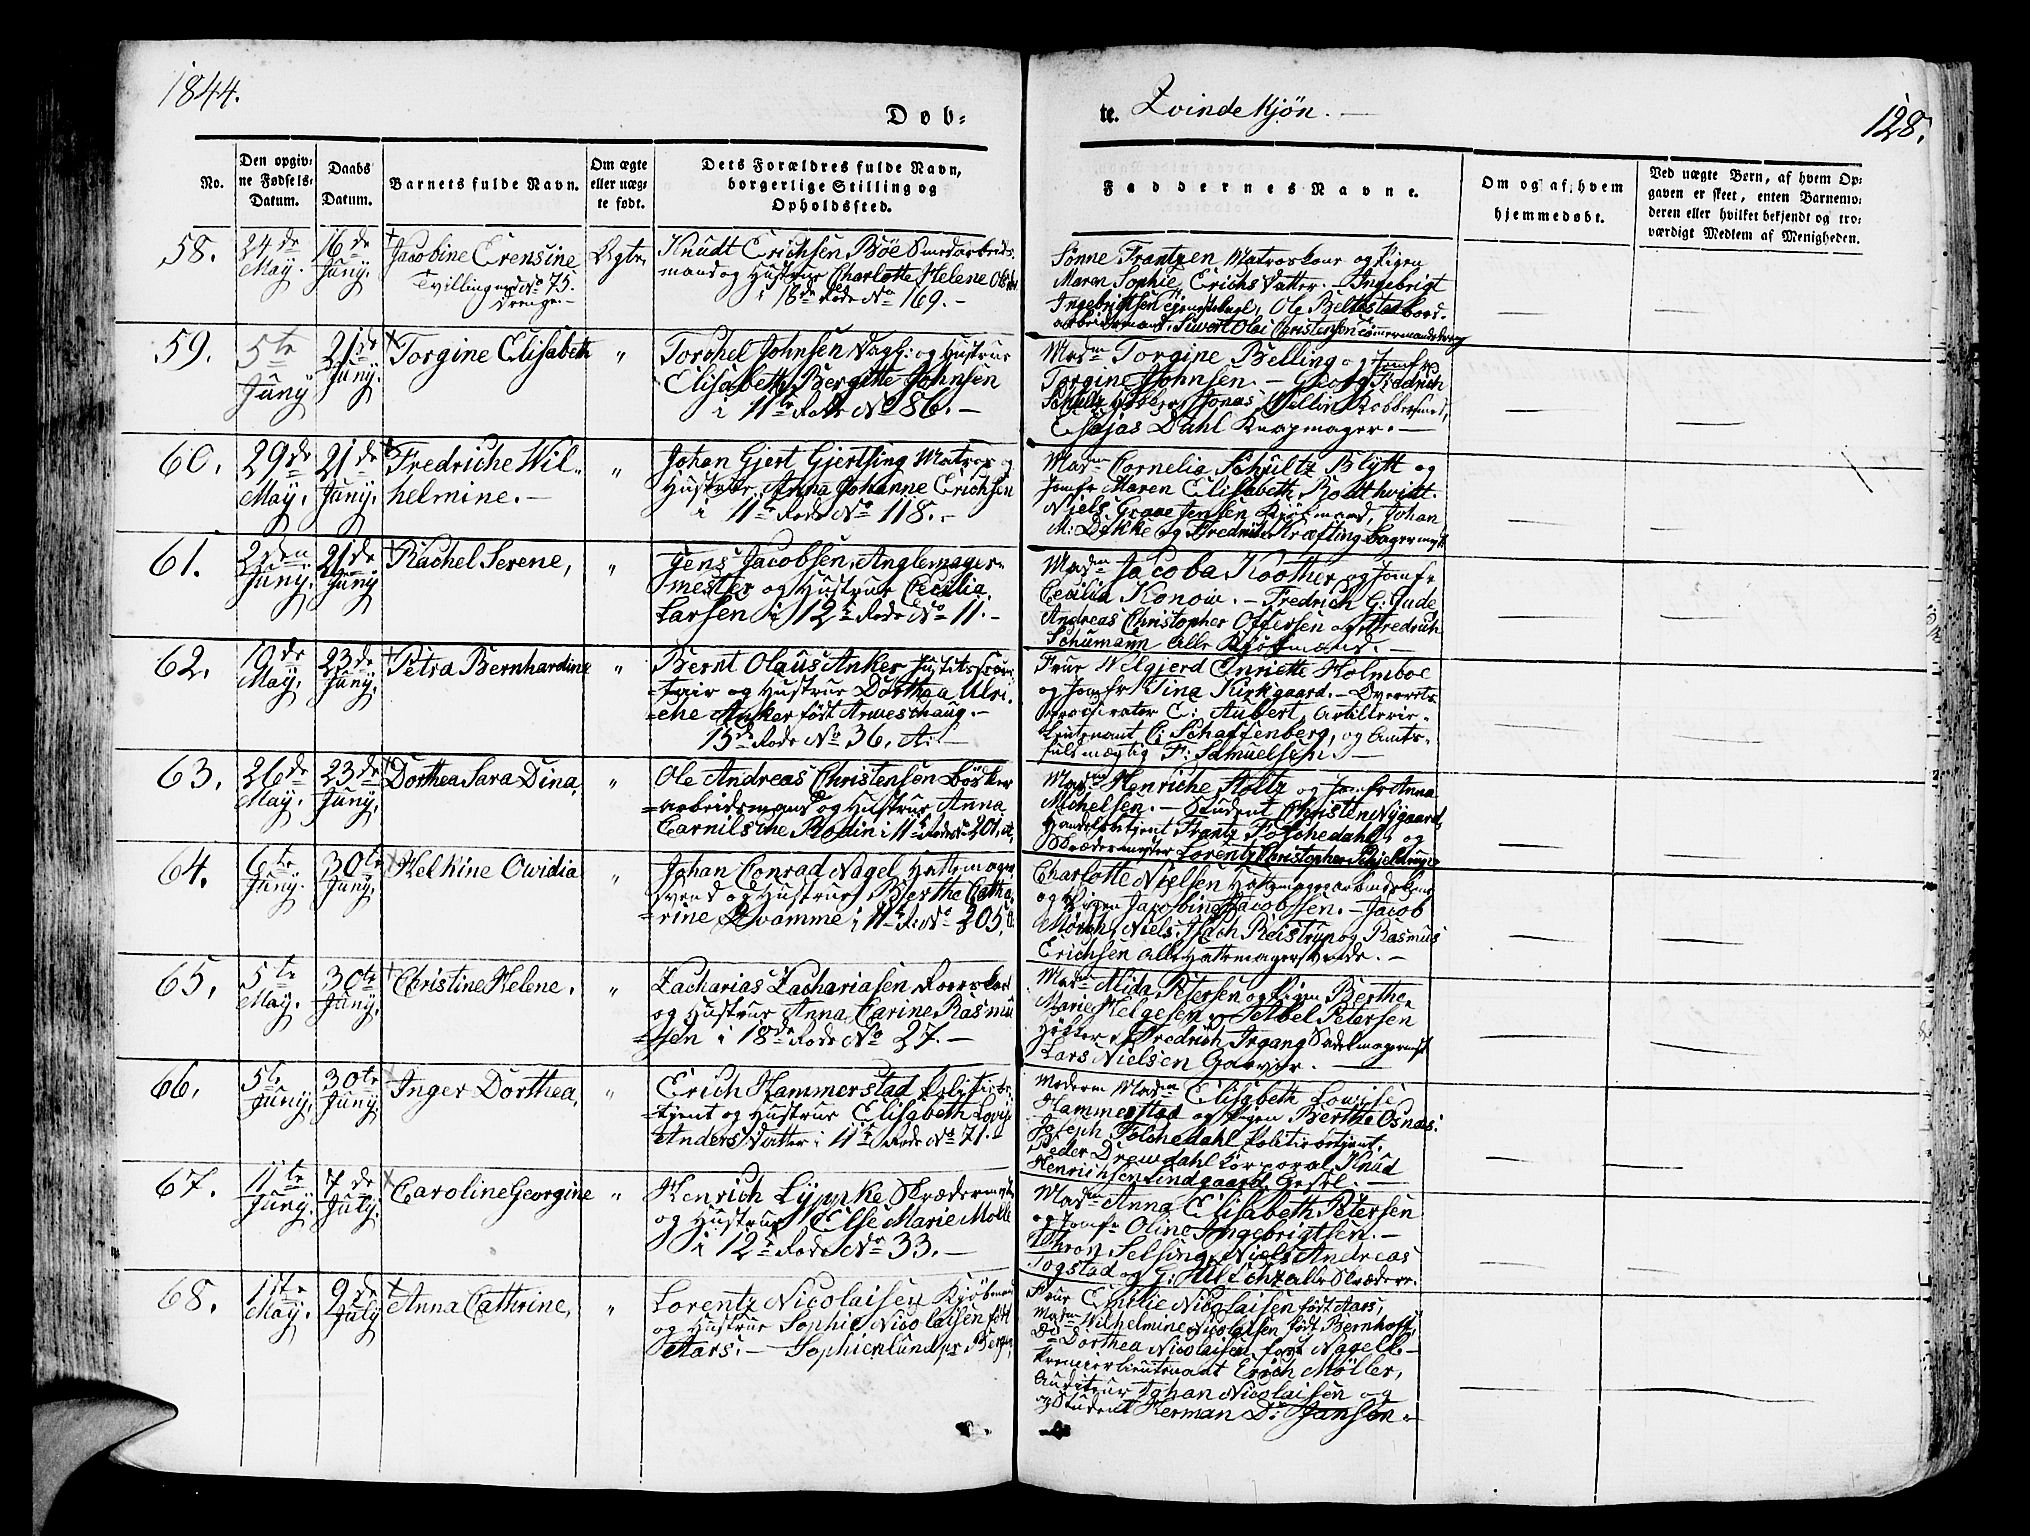 1844.
Døb-
te. Qvindekjøn. —
128.
No.
Den opgiv-
ne Fødsels-
Datum.
Daabs
Datum.
Barnets fulde Navn.
Om ægte
eller uæg-
te født.
Dets Forældres fulde Navn,
borgerlige Stilling og
Opholdssted.
Faddernes Navne.
Om og af hvem
hjemmedøbt.
Ved uægte Børn, af hvem Op-
gaven er skeet, enten Barnemo-
deren eller hvilket bekjendt og tro-
værdigt Medlem af Menigheden.
58.
24de
May.
16de
Juny.
Jacobine Erensine
Tvilling med No 75.
Drenge.—
Ægte.
Knudt Erichsen Böe
mand og Hustrue Charlotte Helene
i 18de Rode No 169. —
Sønne Frantzen Matroskone og Pigen
Maren Sophie Erichs Datter. Ingebrigt
Ingebrigtsen Ole
arbeidsmand, Siwert Olai Christensen
59.
5te
Juny
21de
Juny.
Torgine Elisabeth
"
Torchel Johnsen Vagt: og Hustrue
Elisabeth Bergitte Johnsen
i 11te Rode No 86. —
Madm Torgine Belling og Jomfr
Torgine Johnsen. — Georg Fredrich
Schultz Jonas Wellin Kobbersmed,
Esajas Dahl Knapmager. —
60.
29de
May.
21de
Juny.
Fredriche Wil-
helmine. —
"
Johan Gjert Gjertsing Matros og
Hustrue Anna Johanne Erichsen
i 11te Rode No 118. —
Madm Cornelia Schultz Blytt og
Jomfr Maren Elisabeth Bodthvidt.
Niels Grave Jensen Kjøbmand, Johan
M: Dekke og Fredrich Kræfting bagermstr
61.
2den
Juny.
21de
Juny
Rachel Serene,
"
Jens Jacobsen, Anglemager-
mester og Hustrue Cecilia
Larsen i 12te Rode No 11. —
Madm Jacoba Koother og Jomfr
Cecilia Konow. — Fredrich G: Gade
Andreas Christopher Offersen og Fredrich
Schumann Alle Kjøbmænd. —
62.
19de
May.
23de
Juny.
Petra Bernhardine
"
Bernt Olaus Anker
og Hustrue Dorthea Ulri-
che Anker født
15de Rode No 36. A: —
Frue Wilgjerd Enriette Holmboe
og Jomfr Tina Kirkgaard. — Overrets-
procurator C: Aubert, Artillerie-
Lieutenant C: Scharffenberg, og Amts-
fuldmægtig F: Samuelsen. —
63.
26de
May.
23de
Juny.
Dorthea Sara Dina,
"
Ole Andreas Christensen
arbeidsmand og Hustrue Anna
Carnilsine Rodin i 11te Rode No 201.
Madm Henriche Holtz og Jomfr Anna
Michelsen. — Student Christen Nygaard,
Handelsbetjent Frantz Tolchedahl, og
Skrædermester Lorentz Christopher Schjelderup
64.
6te
Juny.
30te
Juny.
Helkine Owidia
"
Johan Conrad Nagel Hattemager
svend og Hustrue Berthe Catha-
rine Qvamme i 11te R. No 205.
Charlotte Nielsen
og Pigen Jacobine Jacobssen. — Jacob
Mørch, Niels Isach Reistrup og Rasmus
Erichsen alle Hattemagersvende. —
65.
5te
May.
30te
Juny.
Christine Helene.
"
Zacharias Zachariasen
og Hustrue Anna Carine Rasmu
sen i 18de Rode No 27. —
Madm Alida Petersen og Pigen Berthe
Marie Helgesen. — Abel Petersen
Høkker, Fredrich Irgang Sadelmagermst
Lars Nielsen Garver. —
66.
5te
Juny.
30te
Juny.
Inger Dorthea,
"
Erich Hammerstad Politiebe-
tjent og Hustrue Elisabeth Lovise
Anders Datter i 11te Rode No 71. —
Moderen Madm Elisabeth Louise
Hammerstad og Pigen Berthe Osnæs.
Joseph Tolchedahl Politiebetjent,
Peder Drewdahl Corporal, Knud
Henrichsen Lindgaard, Gesel. —
67.
11te
Juny.
7de
July.
Caroline Georgine
"
Henrich Lympke Skrædermstr
og Hustrue Else Marie
i 12te Rode No 33. —
Madm Anna Elisabeth Petersen
og Jomfr Oline Ingebrigtsen. —
Thron Selsing, Niels Andreas
Togstad og G: alle Skrædere.
68.
1ste
May.
9de
July
Anna Cathrine,
"
Lorentz Nicolaisen Kjøbmand
og Hustrue Sophie Nicolaisen født
Aars. — Sophienlund pr Bergen
Frue Emilie Nicolaisen født Aars,
Madm Wilhelmine Nicolaisen født Bernhoft,
Do Dorthea Nicolaisen født Nagell —
Premierlieutenant Erich Møller,
Auditeur Johan Nicolaisen og
og Student Herman D: Jansen. —